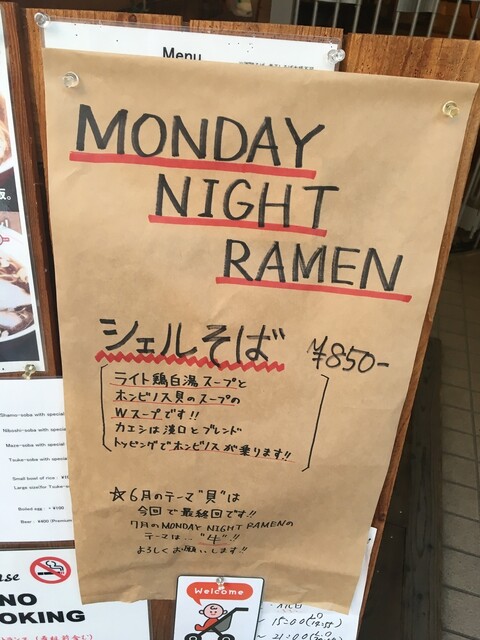 Menu
MONDAY
NIGHT
RAMEN
シェルそば ¥850-
ライト鶏白湯スープと
ホンビノス貝のスープの
Wスープです!!
カエシは濃口とブレンド
トッピングでホンビノスが乗ります!!
☆6月のテーマ"貝"は
今回で最終回です!!
7月のMONDAY NIGHT RAMENの
テーマは…"牛"!!
よろしくお願いします!!
Welcome
Shamo-soba with special
Niboshi-soba with special
Maze-soba with special
Tsuke-soba with special
Small bowl of rice
Large size(for Tsuke-soba
Boiled egg
Beer : ¥400 (Premium
NO
OKING
15:00
21:00